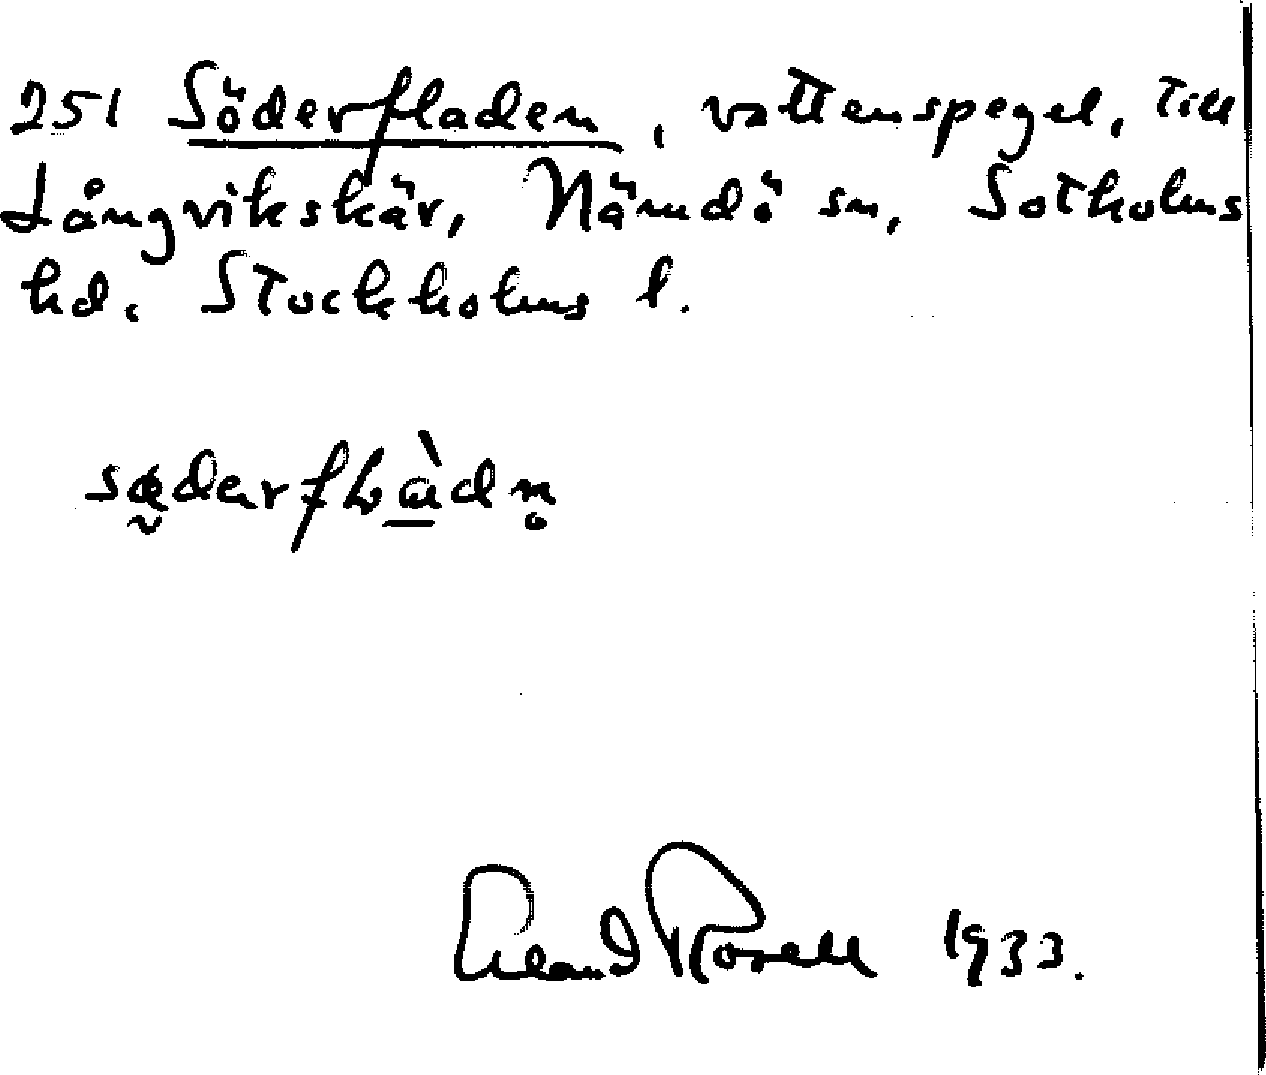 251 Söderfladen, vattenspegel, till
Långvikskär, Nämdö sn, Sotholms
hd. Stockholms l.
sœ̰derflàdn̥
Erland Rosell 1933.